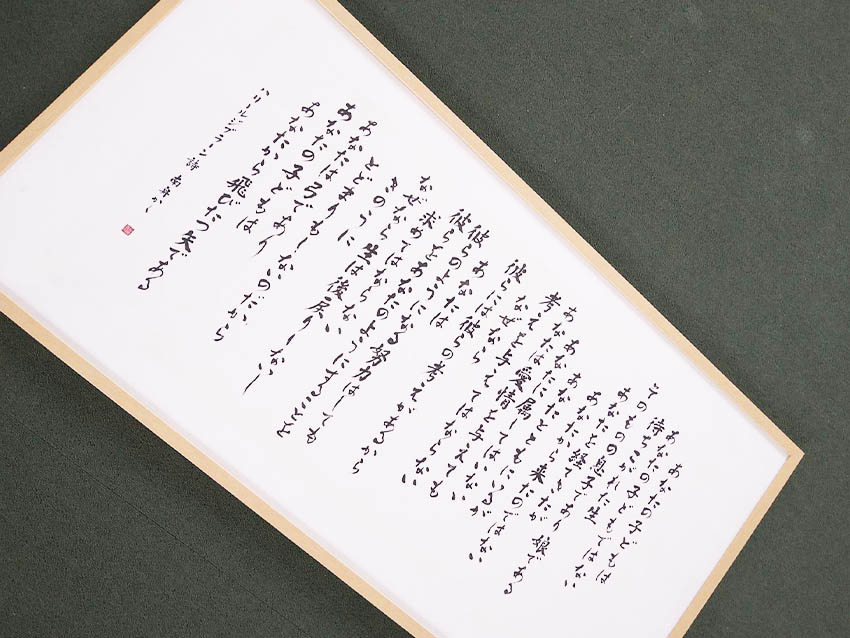 あなたの子どもは
あなたの子どもではない
待ちこがれた生
そのものの息子であり 娘である
あなたを経てきたが
あなたから来たのではない
あなたとともにいるが
あなたに属してはいない
あなたは愛情を与えても
考えを与えてはならない
なぜなら
彼らには彼らの考えがあるから
あなたは
彼らのようになる努力はしても
彼らをあなたのようにすることを
求めてはならない
なぜなら生は後戻りしないし
きのうに
とどまりもしないのだから
あなたは弓であり
あなたの子どもは
あなたから飛びたつ矢である
ハリールジブラーン 詩